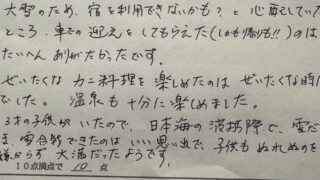 大雪のため、宿を利用できないかも？と心配していた
ところ、車での迎えをしてもらえた(しかも帰りも!!)のは
たいへんありがたかったです。
ぜいたくなカニ料理を楽しめたのはぜいたくな時
でした。温泉も十分に楽しめました。
3才の子供がいたので、日本海の波打際で、雪だ
ま、雪合戦できたのはいい思い出で、子供もぬれぬのを
からず大満だったようです。
10点満点で 10 点